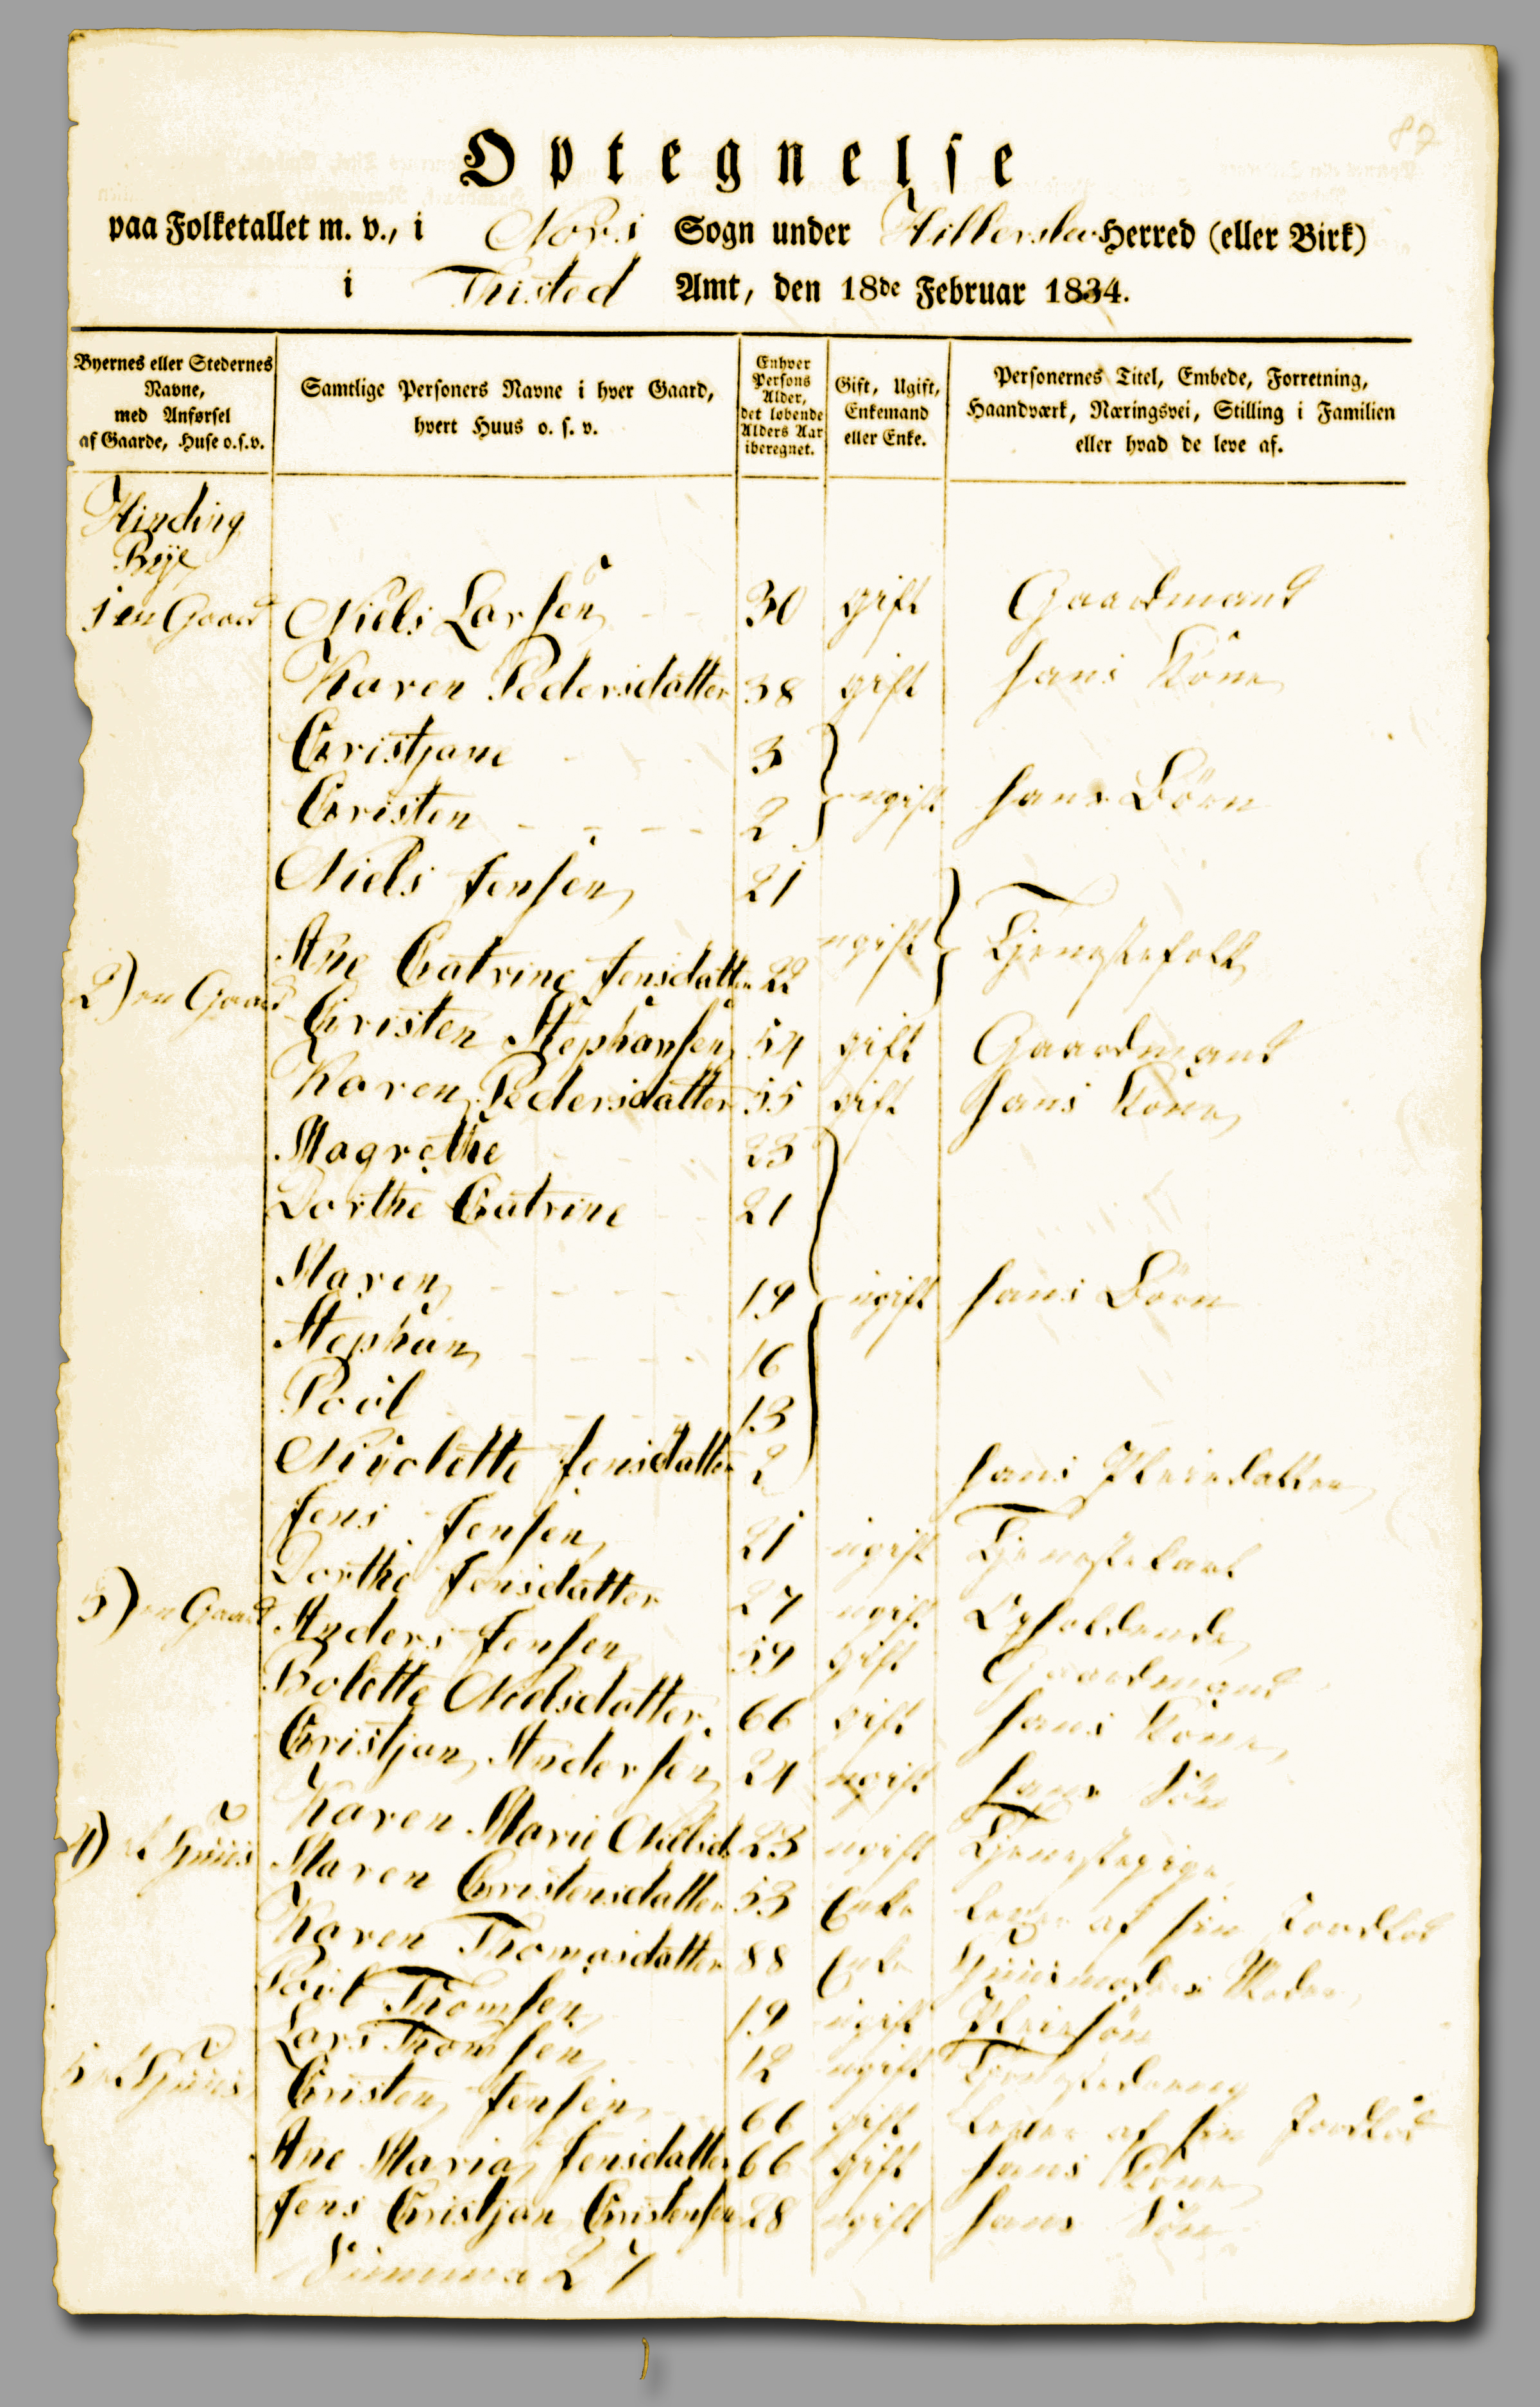 82
Optegnelse
paa Folketallet m. v., i Nors Sogn under Hillerslev Herred (eller Birk)
i Thisted Amt, den 18de Februar 1834.
Byernes eller Stedernes Navne, med Anførsel af Gaarde, Huse o.s.v.
Samtlige Personers Navne i hver Gaard, hvert Huus o. s. v.
Enhver Persons Alder, det løbende Alders Aar iberegnet.
Gift, Ugift, Enkemand eller Enke.
Personernes Titel, Embede, Forretning, Haandværk, Næringsvei, Stilling i Familien eller hvad de leve af.
Hinding
Bÿe
1 en Gaard Niels Larsen 30 gift Gaardmand
Karen Pedersdatter 38 gift hans Kone
Cristjane 3
Cristen 2 ugift hans Börn
Niels Jensen 21
Ane Catrine Jensdatter 22 ugift Tjenestefolk
2) en Gaard Cristen Stephansen 54 gift Gaardmand
Karen Pedersdatter 55 gift hans Kone
Magrethe 23
Dorthe Catrine 21
Maren 19 ugift hans Börn
Stephan 16
Poül 13
Nicolette Jensdatter 2 hans Pleiedatter
Jens Jensen 21 ugift Tjenestekarl
Dorthe Jensdatter 27 ugift Opholdende
3) en Gaard Anders Jensen 59 gift Gaardmand
Bolette Nielsdatter 66 gift hans Kone
Cristjan Andersen 24 ugift hans Sön
Karen Marie Nielsd. 23 ugift Tjenestepige
4) et Huus Maren Cristensdatter 53 Enke lever af sin Jordlod
Karen Thomasdatter 88 Enke Huusmoders Moder
Poül Thomsen 19 ugift Pleiesön
Lars Thomsen 12 ugift Tjenestedreng
5 et Huus Cristen Jensen 66 gift lever af sin Jordlod
Ane Maria Jensdatter 66 gift hans Kone
Jens Cristjan Cristensen 28 ugift hans Sön
Summa 27